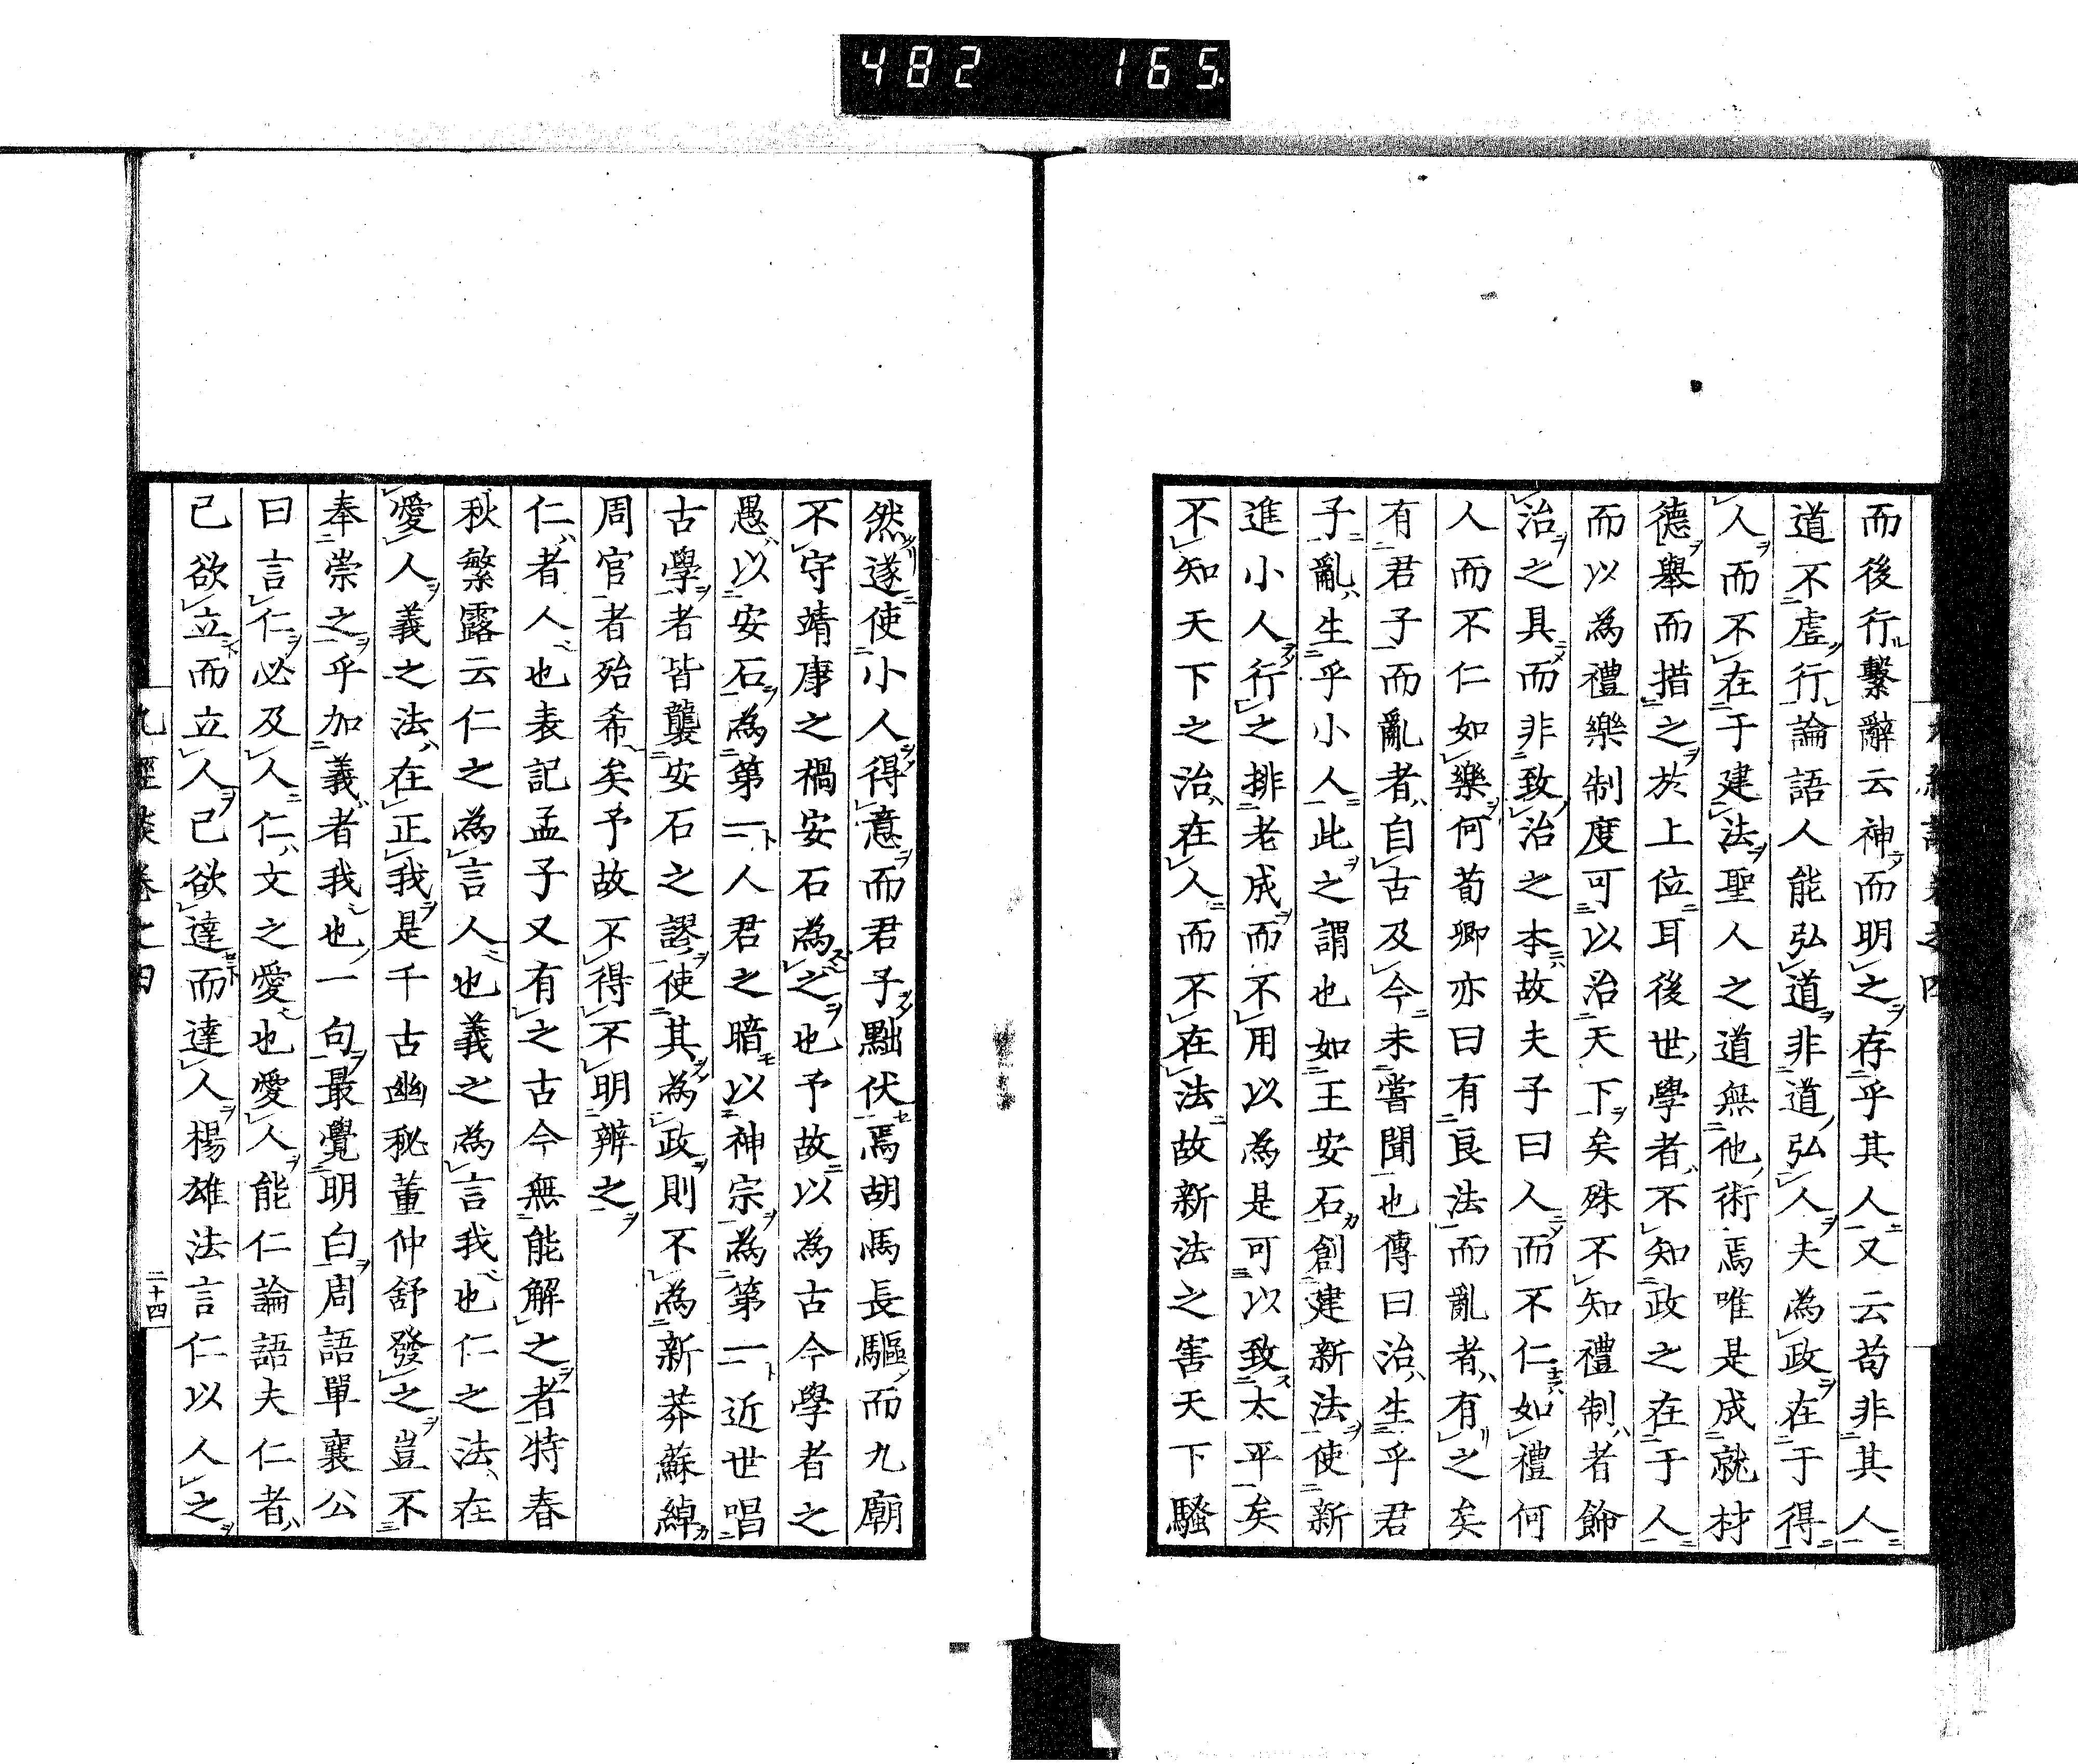 482 165.
而後行繫辭云神而明之存乎其人又云苟非其人
道不虛行論語人能弘道非道弘人夫為政在于得
人而不在于建法聖人之道無他術焉唯是成就材
德舉而措之於上位耳後世學者不知政之在于人
而以為禮樂制度可以治天下矣殊不知禮制者餙
治之具而非致治之本故夫子曰人而不仁如禮何
人而不仁如樂何荀卿亦曰有良法而亂者有之矣
有君子而亂者自古及今未嘗聞也傳曰治生乎君
子亂生乎小人此之謂也如王安石創建新法使新
進小人行之排老成而不用以為是可以致太平矣
不知天下之治在人而不在法故新法之害天下騷
然遂使小人得意而君子黜伏焉胡馬長驅而九廟
不守靖康之禍安石為之也予故以為古今學者之
愚以安石為第一人君之暗以神宗為第一近世唱
古學者皆襲安石之謬使其為政則不為新莽蘇綽
周官者殆希矣予故不得不明辨之
仁者人也表記孟子又有之古今無能解之者特春
秋繁露云仁之為言人也義之為言我也仁之法在
愛人義之法在正我是千古幽秘董仲舒發之豈不
奉崇之乎加義者我也一句最覺明白周語單襄公
曰言仁必及人仁文之愛也愛人能仁論語夫仁者
己欲立而立人己欲達而達人楊雄法言仁以人之
九經談卷之四
二十四